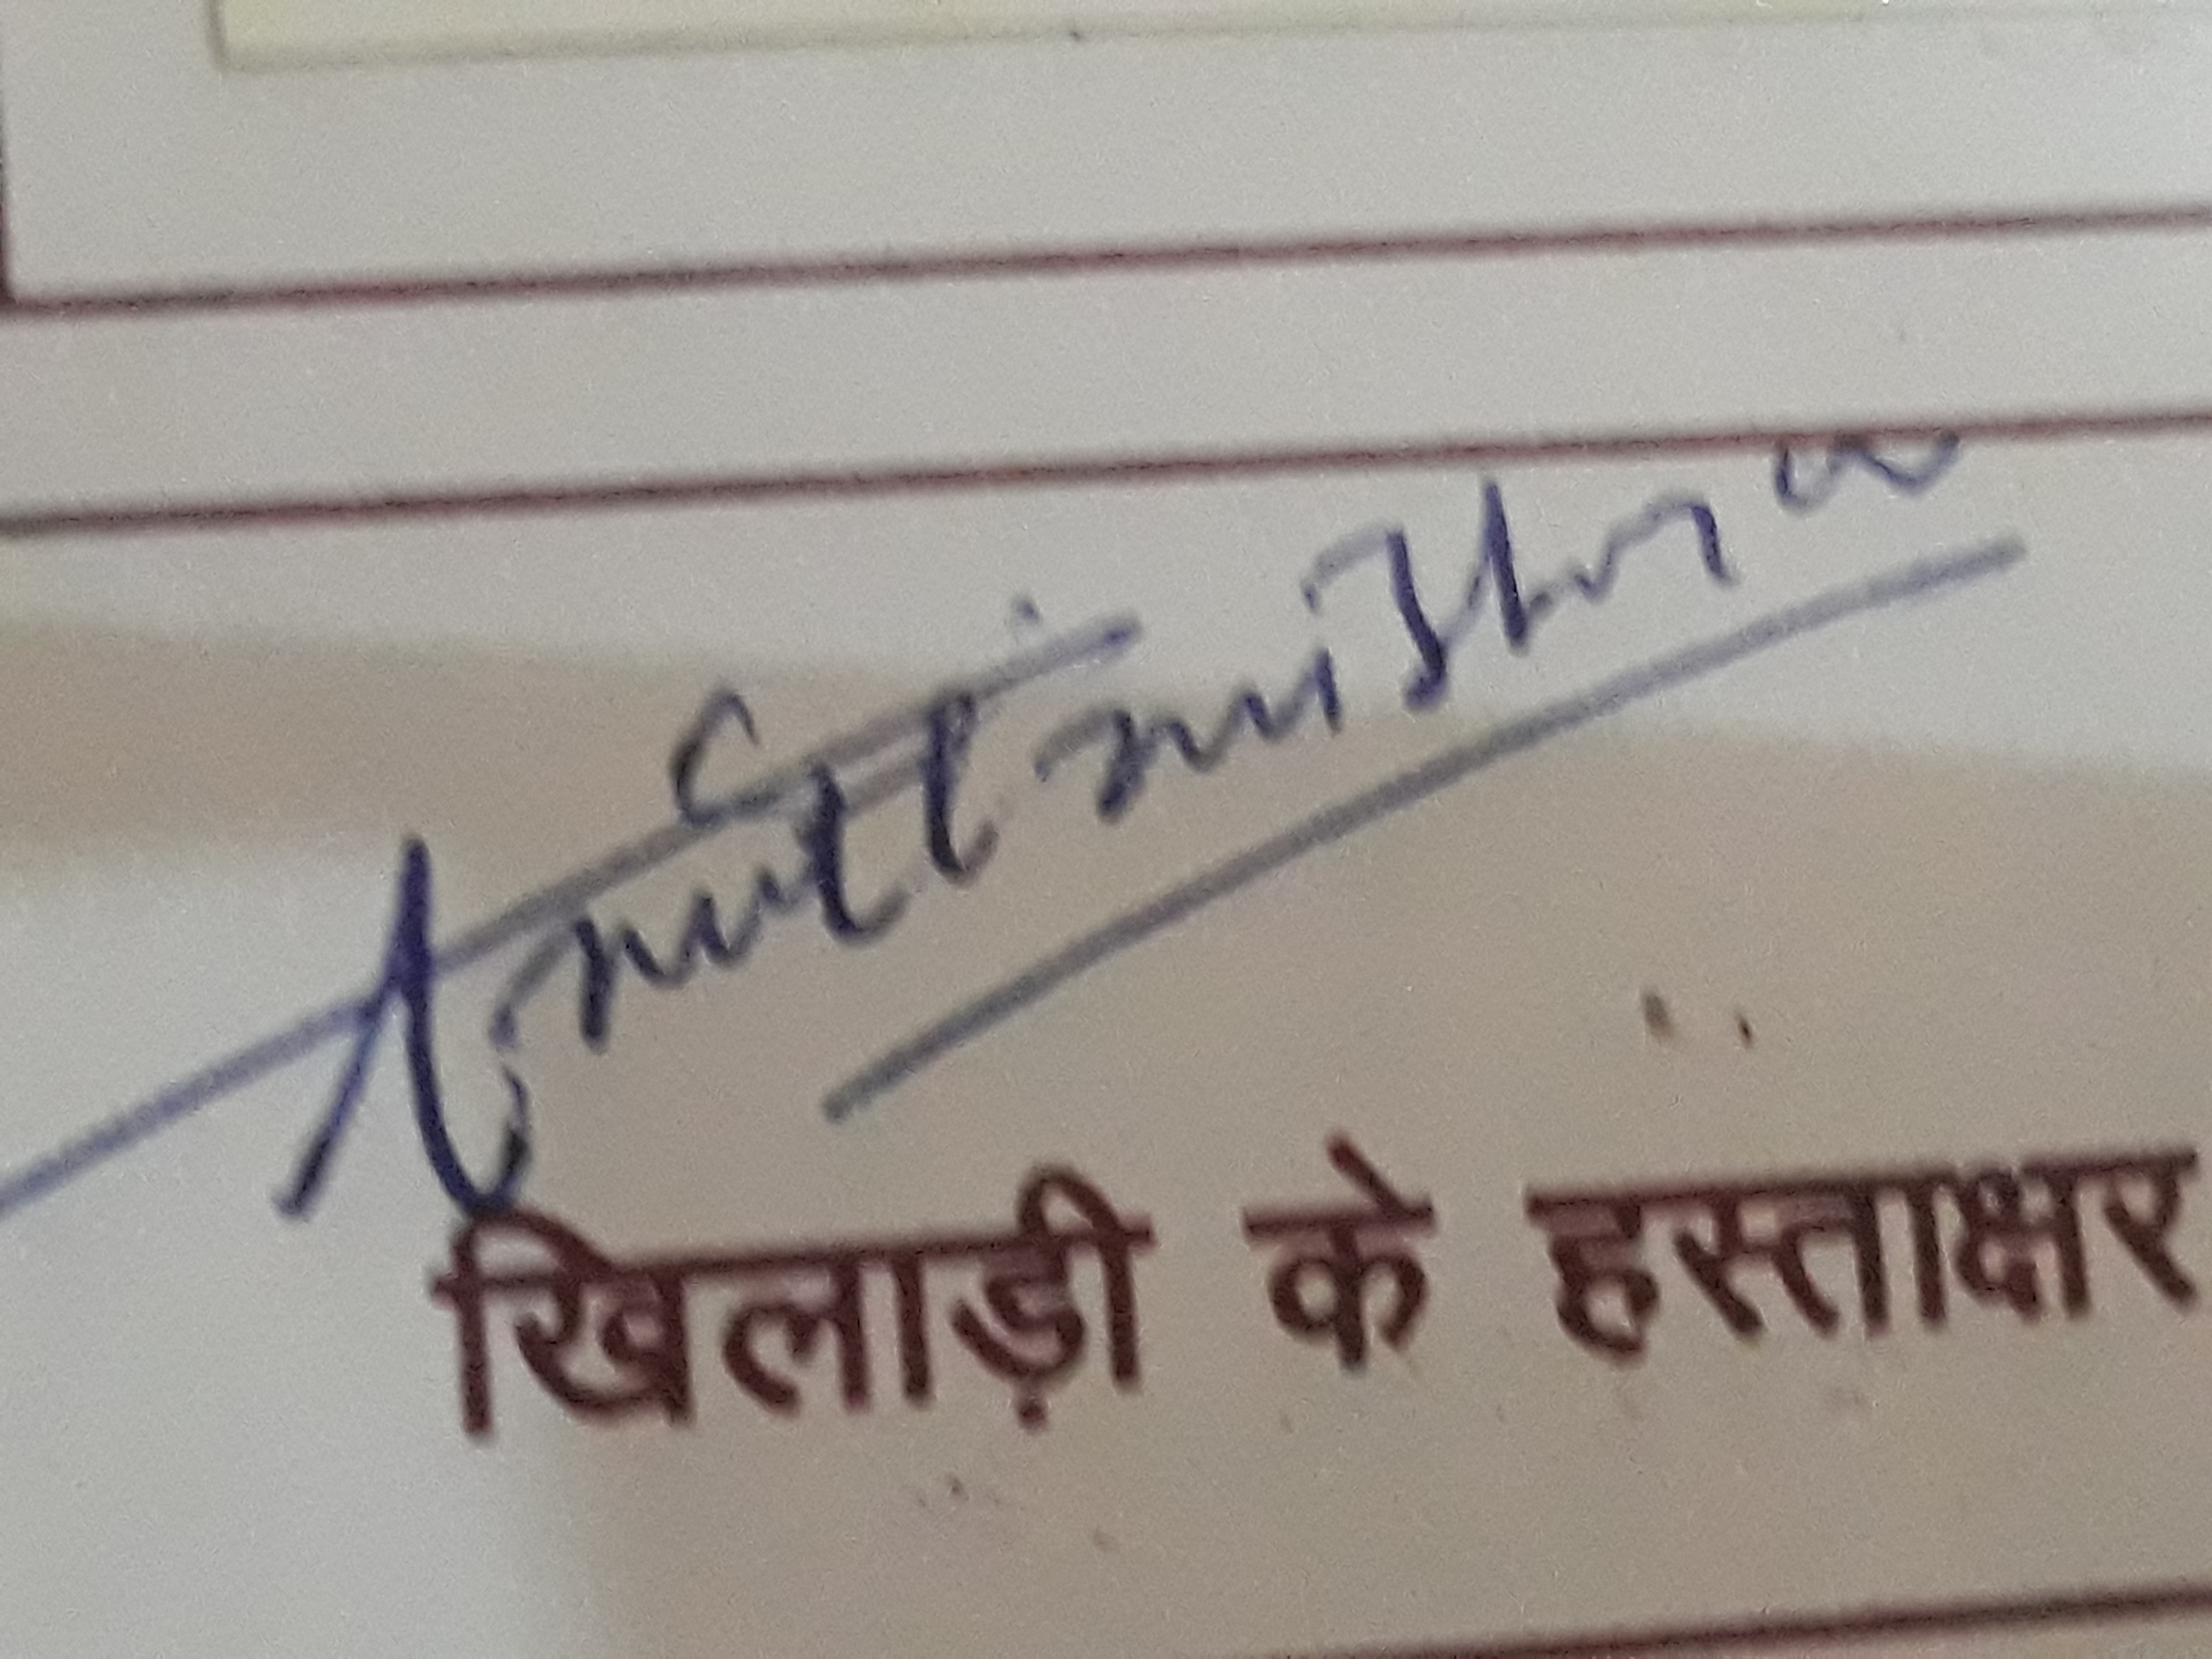 mishra
खिलाड़ी के हस्ताक्षर